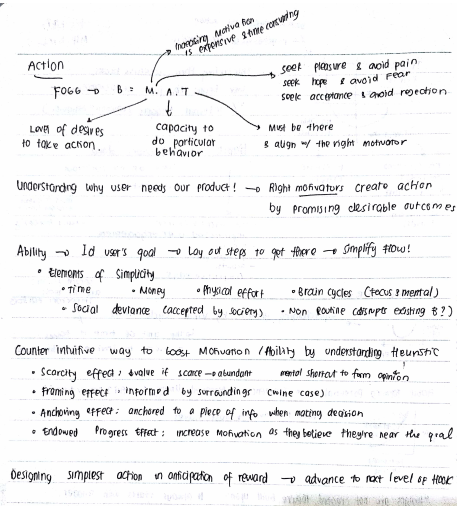 increasing motivation
is expensive & time consuming
Action
FOGG → B = M. A. T
seek pleasure & avoid pain
seek hope & avoid fear
seek acceptance & avoid rejection
Level of desires
to take action.
capacity to
do particular
behavior
Must be there
& align w/ the right motivator
Understanding why user needs our product! → Right motivators create action
by promising desirable outcomes
Ability → Id user's goal → Lay out steps to get there → Simplify flow!
• Elements of Simplicity
• Time • Money • Physical effort • Brain cycles (focus & mental)
• Social deviance (accepted by society) • Non Routine (disrupts existing B?)
Counter intuitive way to boost Motivation / Ability by understanding Heuristic
mental shortcut to form opinion
• Scarcity effect: value if scarce → abundant
• Framing effect: informed by surroundings (wine case)
• Anchoring effect: anchored to a piece of info when making decision
• Endowed Progress Effect: increase Motivation as they believe they're near the goal
Designing simplest action in anticipation of reward → advance to next level of Hook